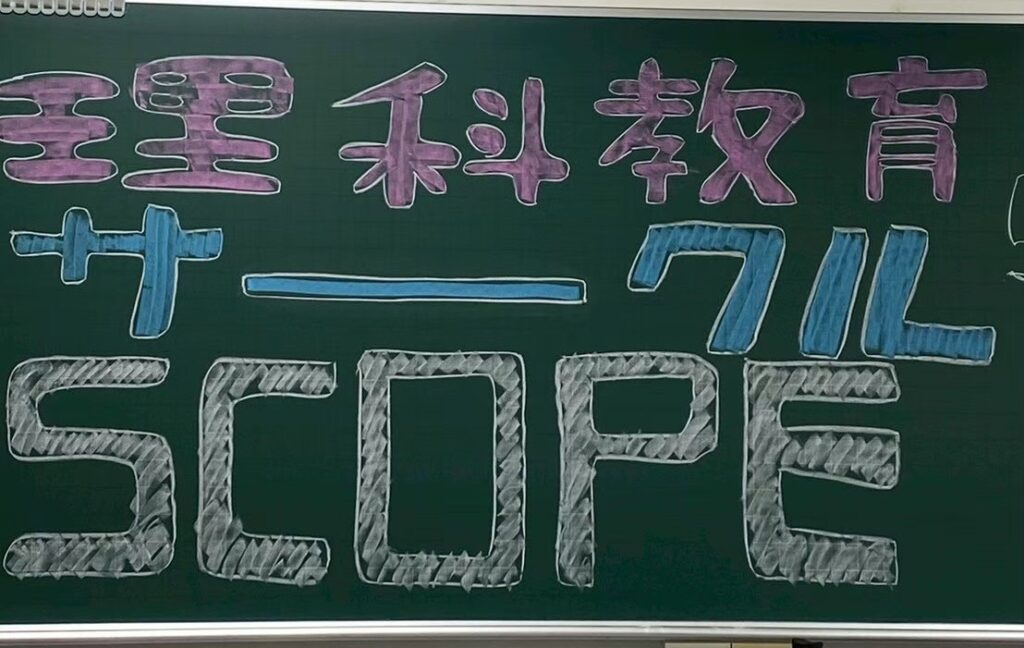 理科教育
サークル
SCOPE